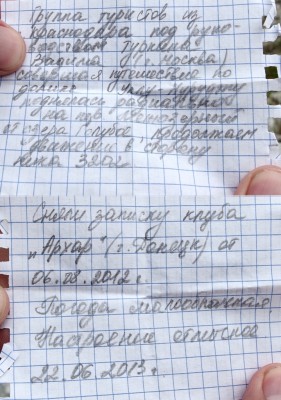 Группа туристов из
Краснодара под руко-
водством Туркина
Вадима (г. Москва)
совершая путешествие по
долине
поднялась радиально
на пер.
от озера Голубое. Продолжаем
движение в сторону
пика 3802
Сняли записку клуба
„Архар" (г. Донецк) от
06.08.2012 г.
Погода малооблачная.
Настроение отличное
22.06.2013 г.